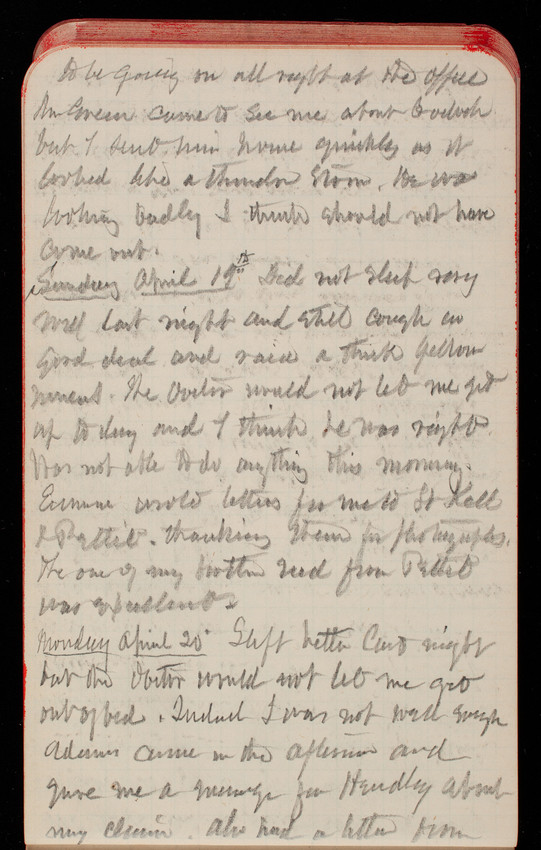 to be going on all right at the office
McGreen came to see me about
but I sent him home quickly as it
looked like a thunder storm. He was
looking badly I think should not have
come out.
Sunday April 19th Did not sleep very
well last night and still cough a
good deal and raise a thick yellow
mucus. The Doctor would not let me get
up to day and I think he was right.
Was not able to do any thing this morning.
wrote letters for me to
& Pettit. thanking them for photographs.
The one of my brother recd from Pettit
was excellent.
Monday April 20 Slept better last night
but the Doctor would not let me get
out of bed. Indeed I was not well enough
Adams came in the afternoon and
gave me a message from Hendley about
my claim. also had a letter from